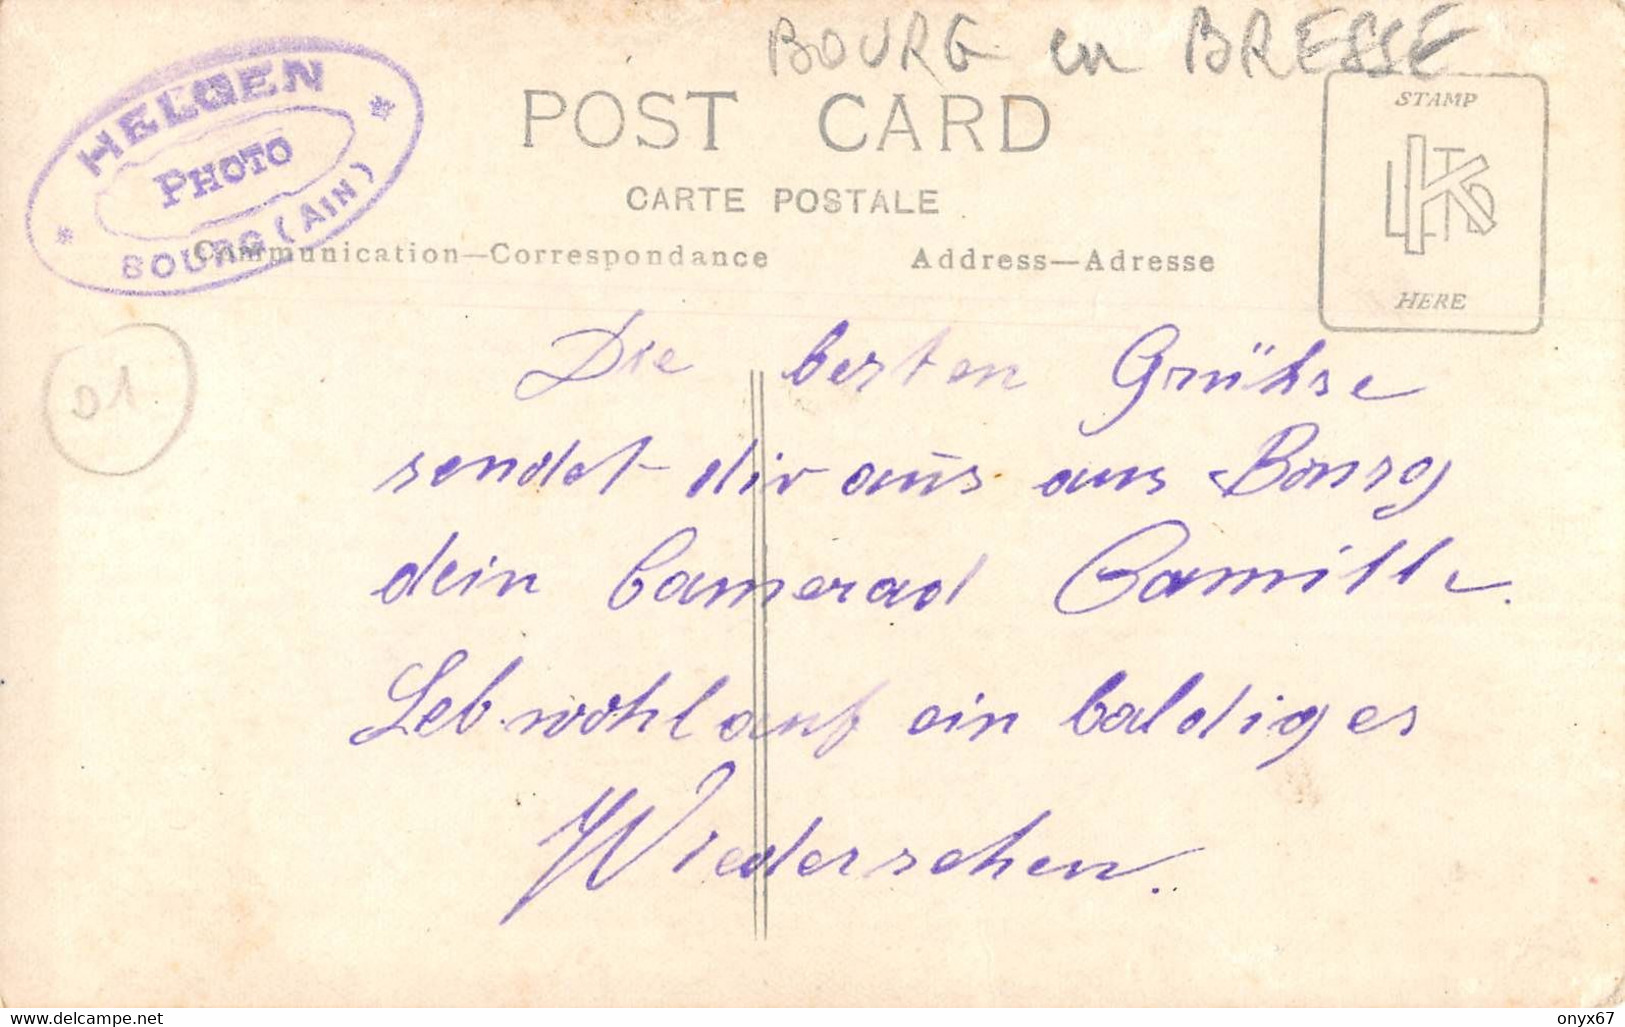 BOURG en BRESSE
HELGEN
PHOTO
BOURG (AIN)
POST CARD
CARTE POSTALE
Communication—Correspondance
Address—Adresse
STAMP
HERE
01
Die besten Grühse
sendet dir aus aus Bourg
dein Camerad Camille.
Leb wohl auf ein baldiges
Wiedersehen.
www.delcampe.net
onyx67